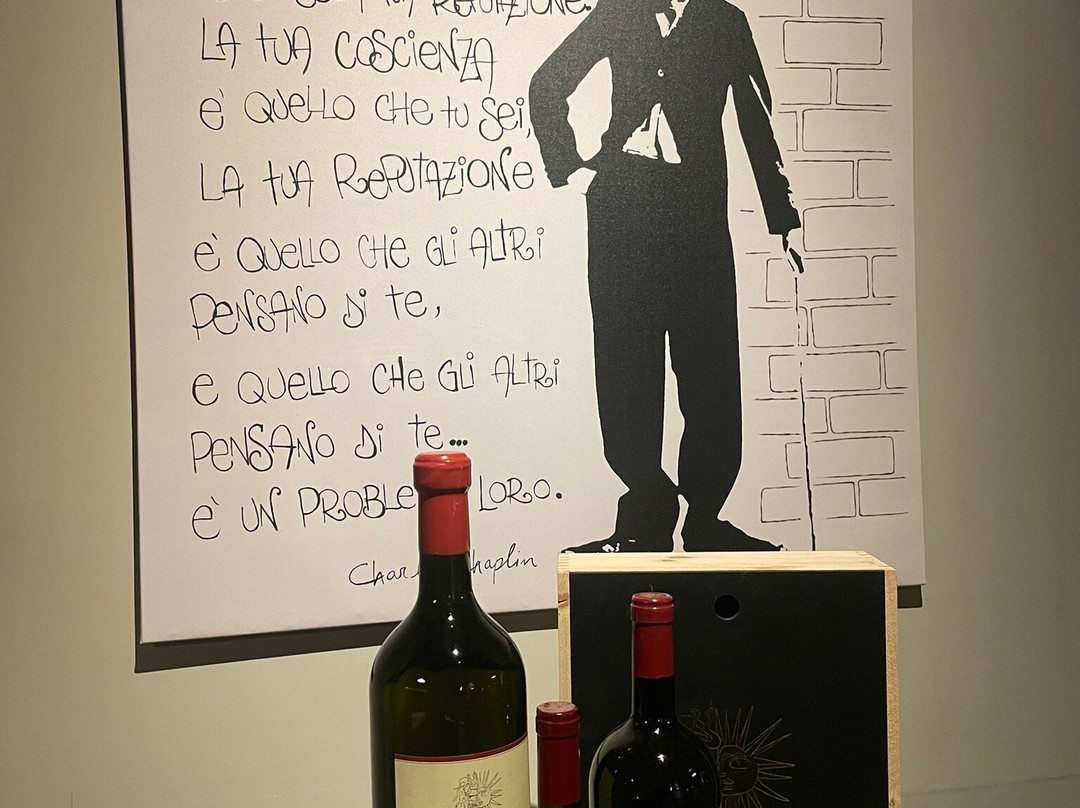 REPUTAZIONE.
LA TUA COSCIENZA
E' QUELLO CHE TU SEI,
LA TUA REPUTAZIONE
E' QUELLO CHE GLI ALTRI
PENSANO DI TE,
E QUELLO CHE GLI ALTRI
PENSANO DI TE...
E' UN PROBLE LORO.
Char haplin